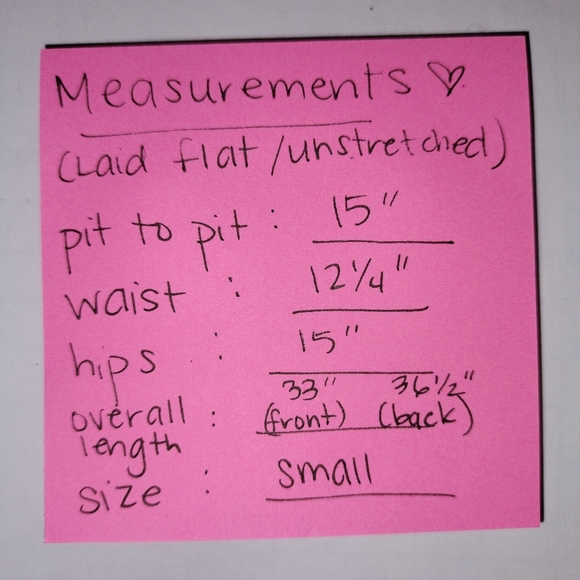 Measurements ♡
(Laid flat/unstretched)
pit to pit : 15"
waist : 12 1/4"
hips : 15"
33" 36 1/2"
overall : (front) (back)
length
size : small